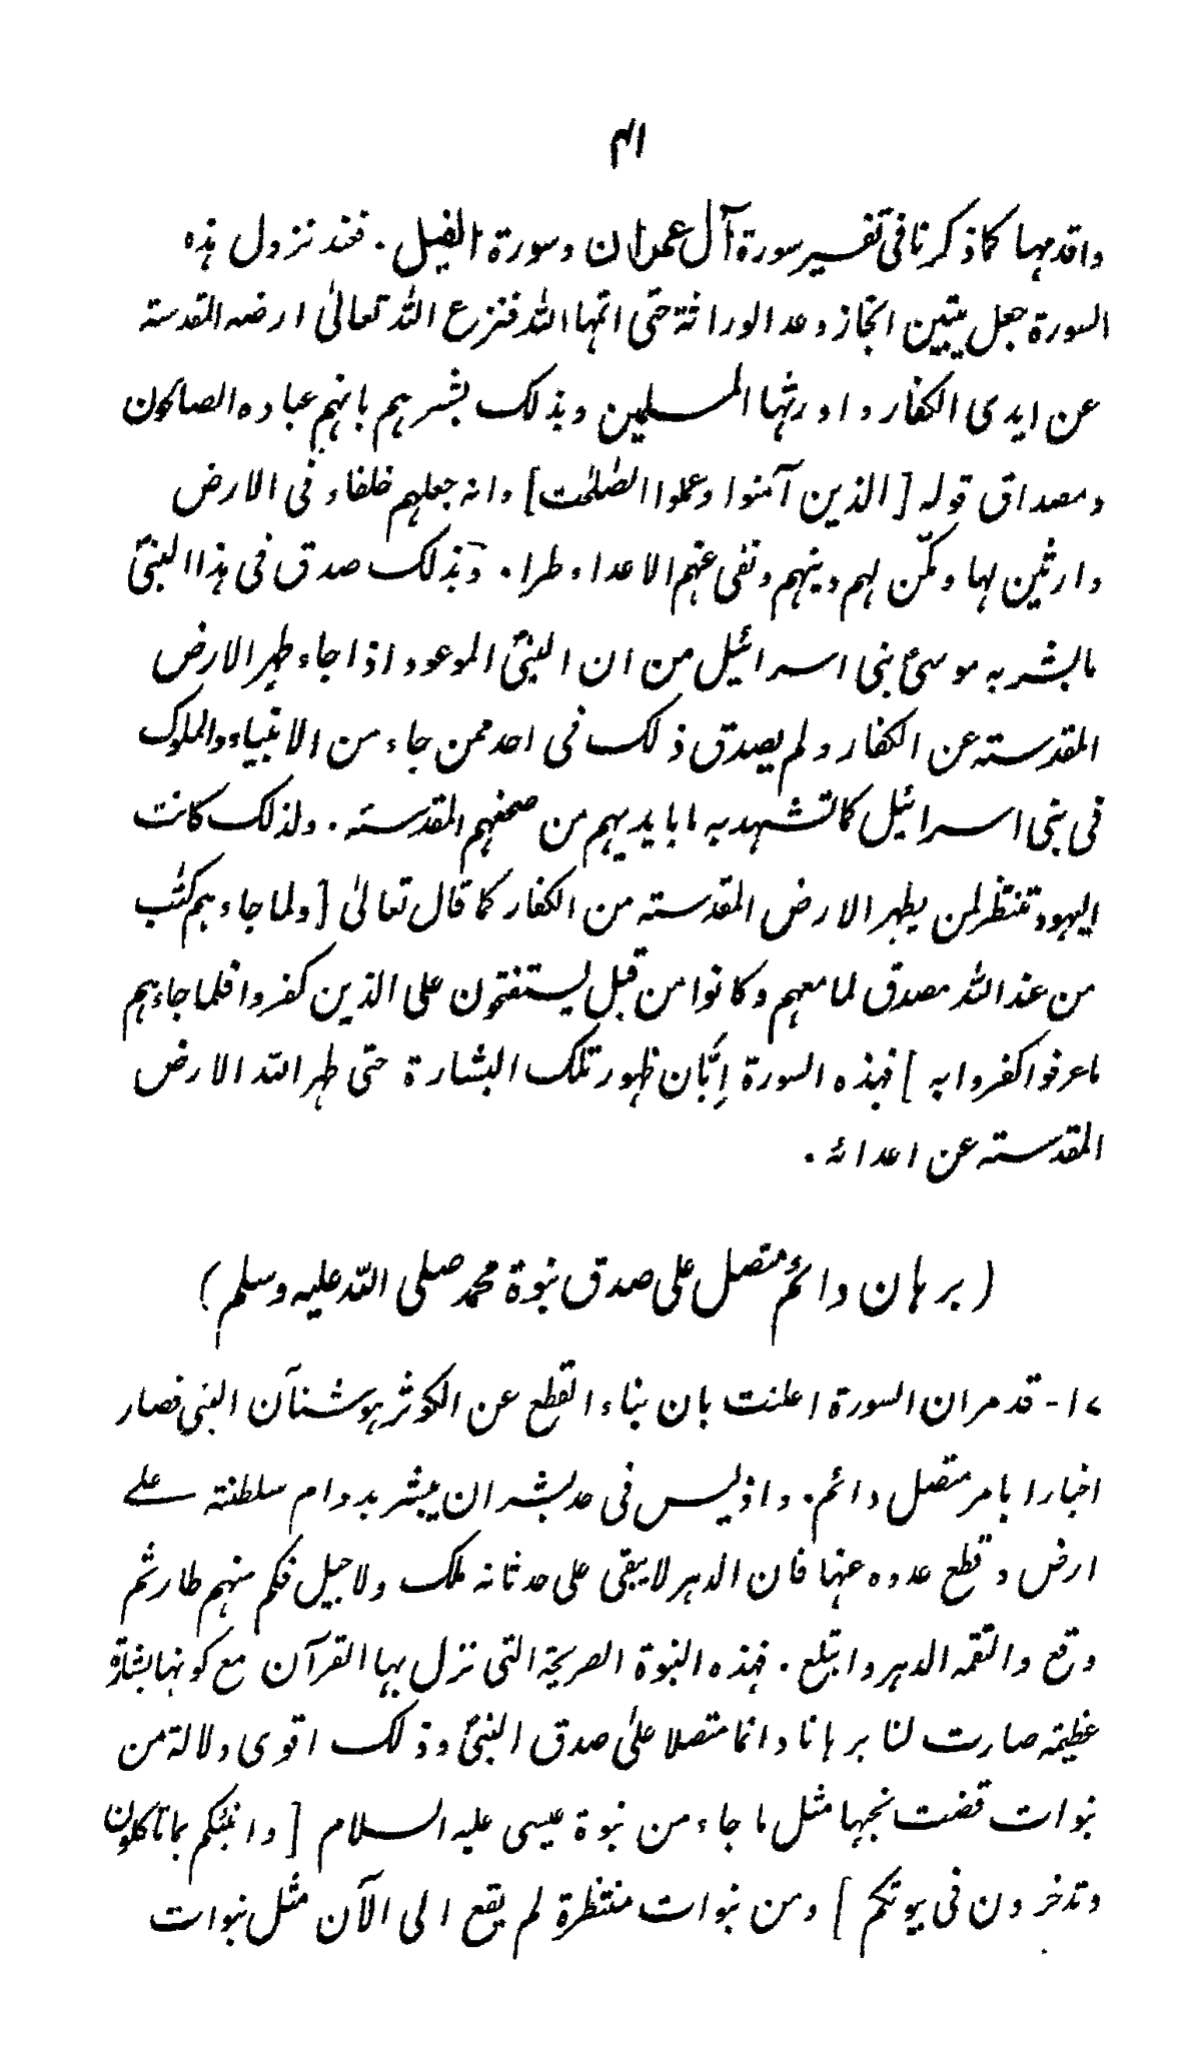 ۴۱
واقدمها كما ذكرنا فی تفسیر سورة آل عمران وسورة الفیل. فعند نزول هذه
السورة جعل یتبین انجاز وعد الوراثة حتی اتمها الله فنزع الله تعالیٰ ارضه المقدسة
عن ایدی الكفار واورثها المسلمین وبذلك بشرهم بانهم عباده الصالحون
ومصداق قوله [الذین آمنوا وعملوا الصلحٰت] وانه جعلهم خلفاء فی الارض
وارثین لها ومكّن لهم دینهم ونفی عنهم الاعداء طرا. وبذلك صدق فی هذا النبیؐ
ما بشر به موسیٰؑ بنی اسرائیل من ان النبیؐ الموعود اذا جاء طهر الارض
المقدسة عن الكفار ولم یصدق ذلك فی احد ممن جاء من الانبیاء والملوك
فی بنی اسرائیل كما تشهد به ما بایدیهم من صحفهم المقدسة. ولذلك كانت
الیهود تنتظر لمن یطهر الارض المقدسة من الكفار كما قال تعالیٰ [ولما جاءهم كتٰب
من عند الله مصدق لما معهم وكانوا من قبل یستفتحون علی الذین كفروا فلما جاءهم
ما عرفوا كفروا به] فهذه السورة اِبّان ظهور تلك البشارة حتی طهر الله الارض
المقدسة عن اعدائه.
(برهان دائم متصل علی صدق نبوة محمد صلی الله علیه وسلم)
۱۷- قد مر ان السورة اعلنت بان بناء القطع عن الكوثر هو شنآن النبی فصار
اخبارا بامر متصل دائم. واذ لیس فی حد بشر ان یبشر بدوام سلطنة علے
ارض وقطع عدوه عنها فان الدهر لا یبقی علی حدثانه ملك ولا جیل فكم منهم طار ثم
وقع والتقمه الدهر وابتلع. فهذه النبوة الصریحة التی نزل بها القرآن مع كونها بشارة
عظیمة صارت لنا برهانا دائما متصلا علیٰ صدق النبیؐ وذلك اقوی دلالة من
نبوات قضت نحبها مثل ما جاء من نبوة عیسی علیه السلام [وانبئكم بما تاكلون
وتدخرون فی بیوتكم] ومن نبوات منتظرة لم یقع الی الآن مثل نبوات